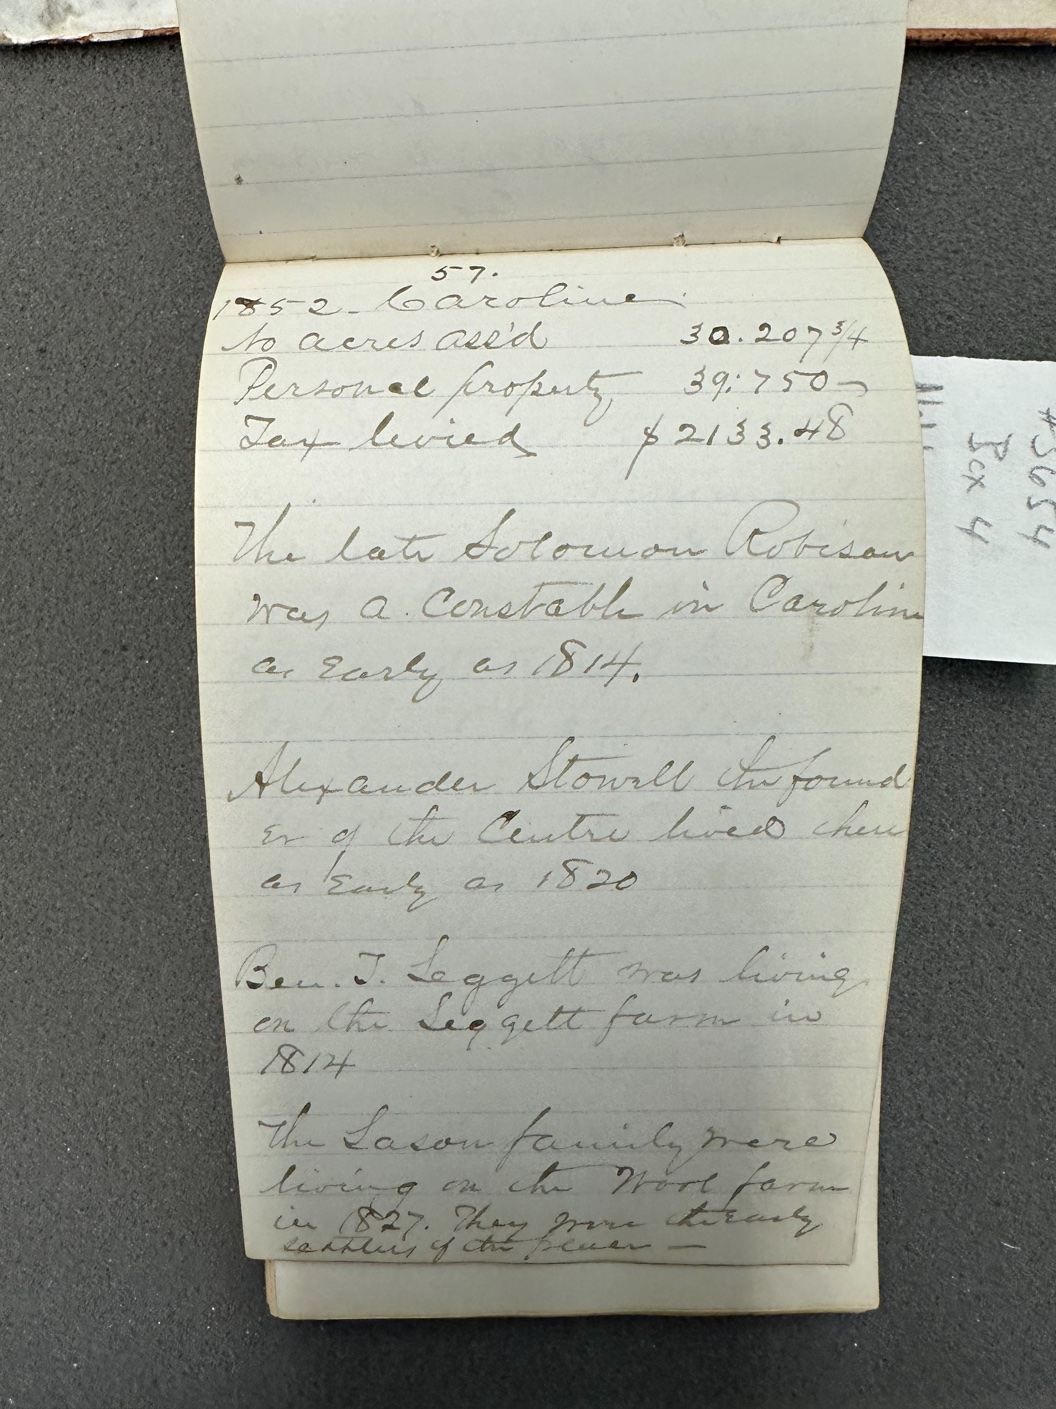 57.
1852 - Caroline
No acres ass'd 30.207 3/4
Personal property 39:750
Tax levied $2133.48
The late Solomon Robison
was a Constable in Caroline
as Early as 1814.
Alexander Stowell the found
er of the Centre lived there
as Early as 1820
Ben. T. Leggett was living
on the Leggett farm in
1814
The Lason family were
living on the farm
in 1827. They were the Early
settlers of the
#3654
Box 4